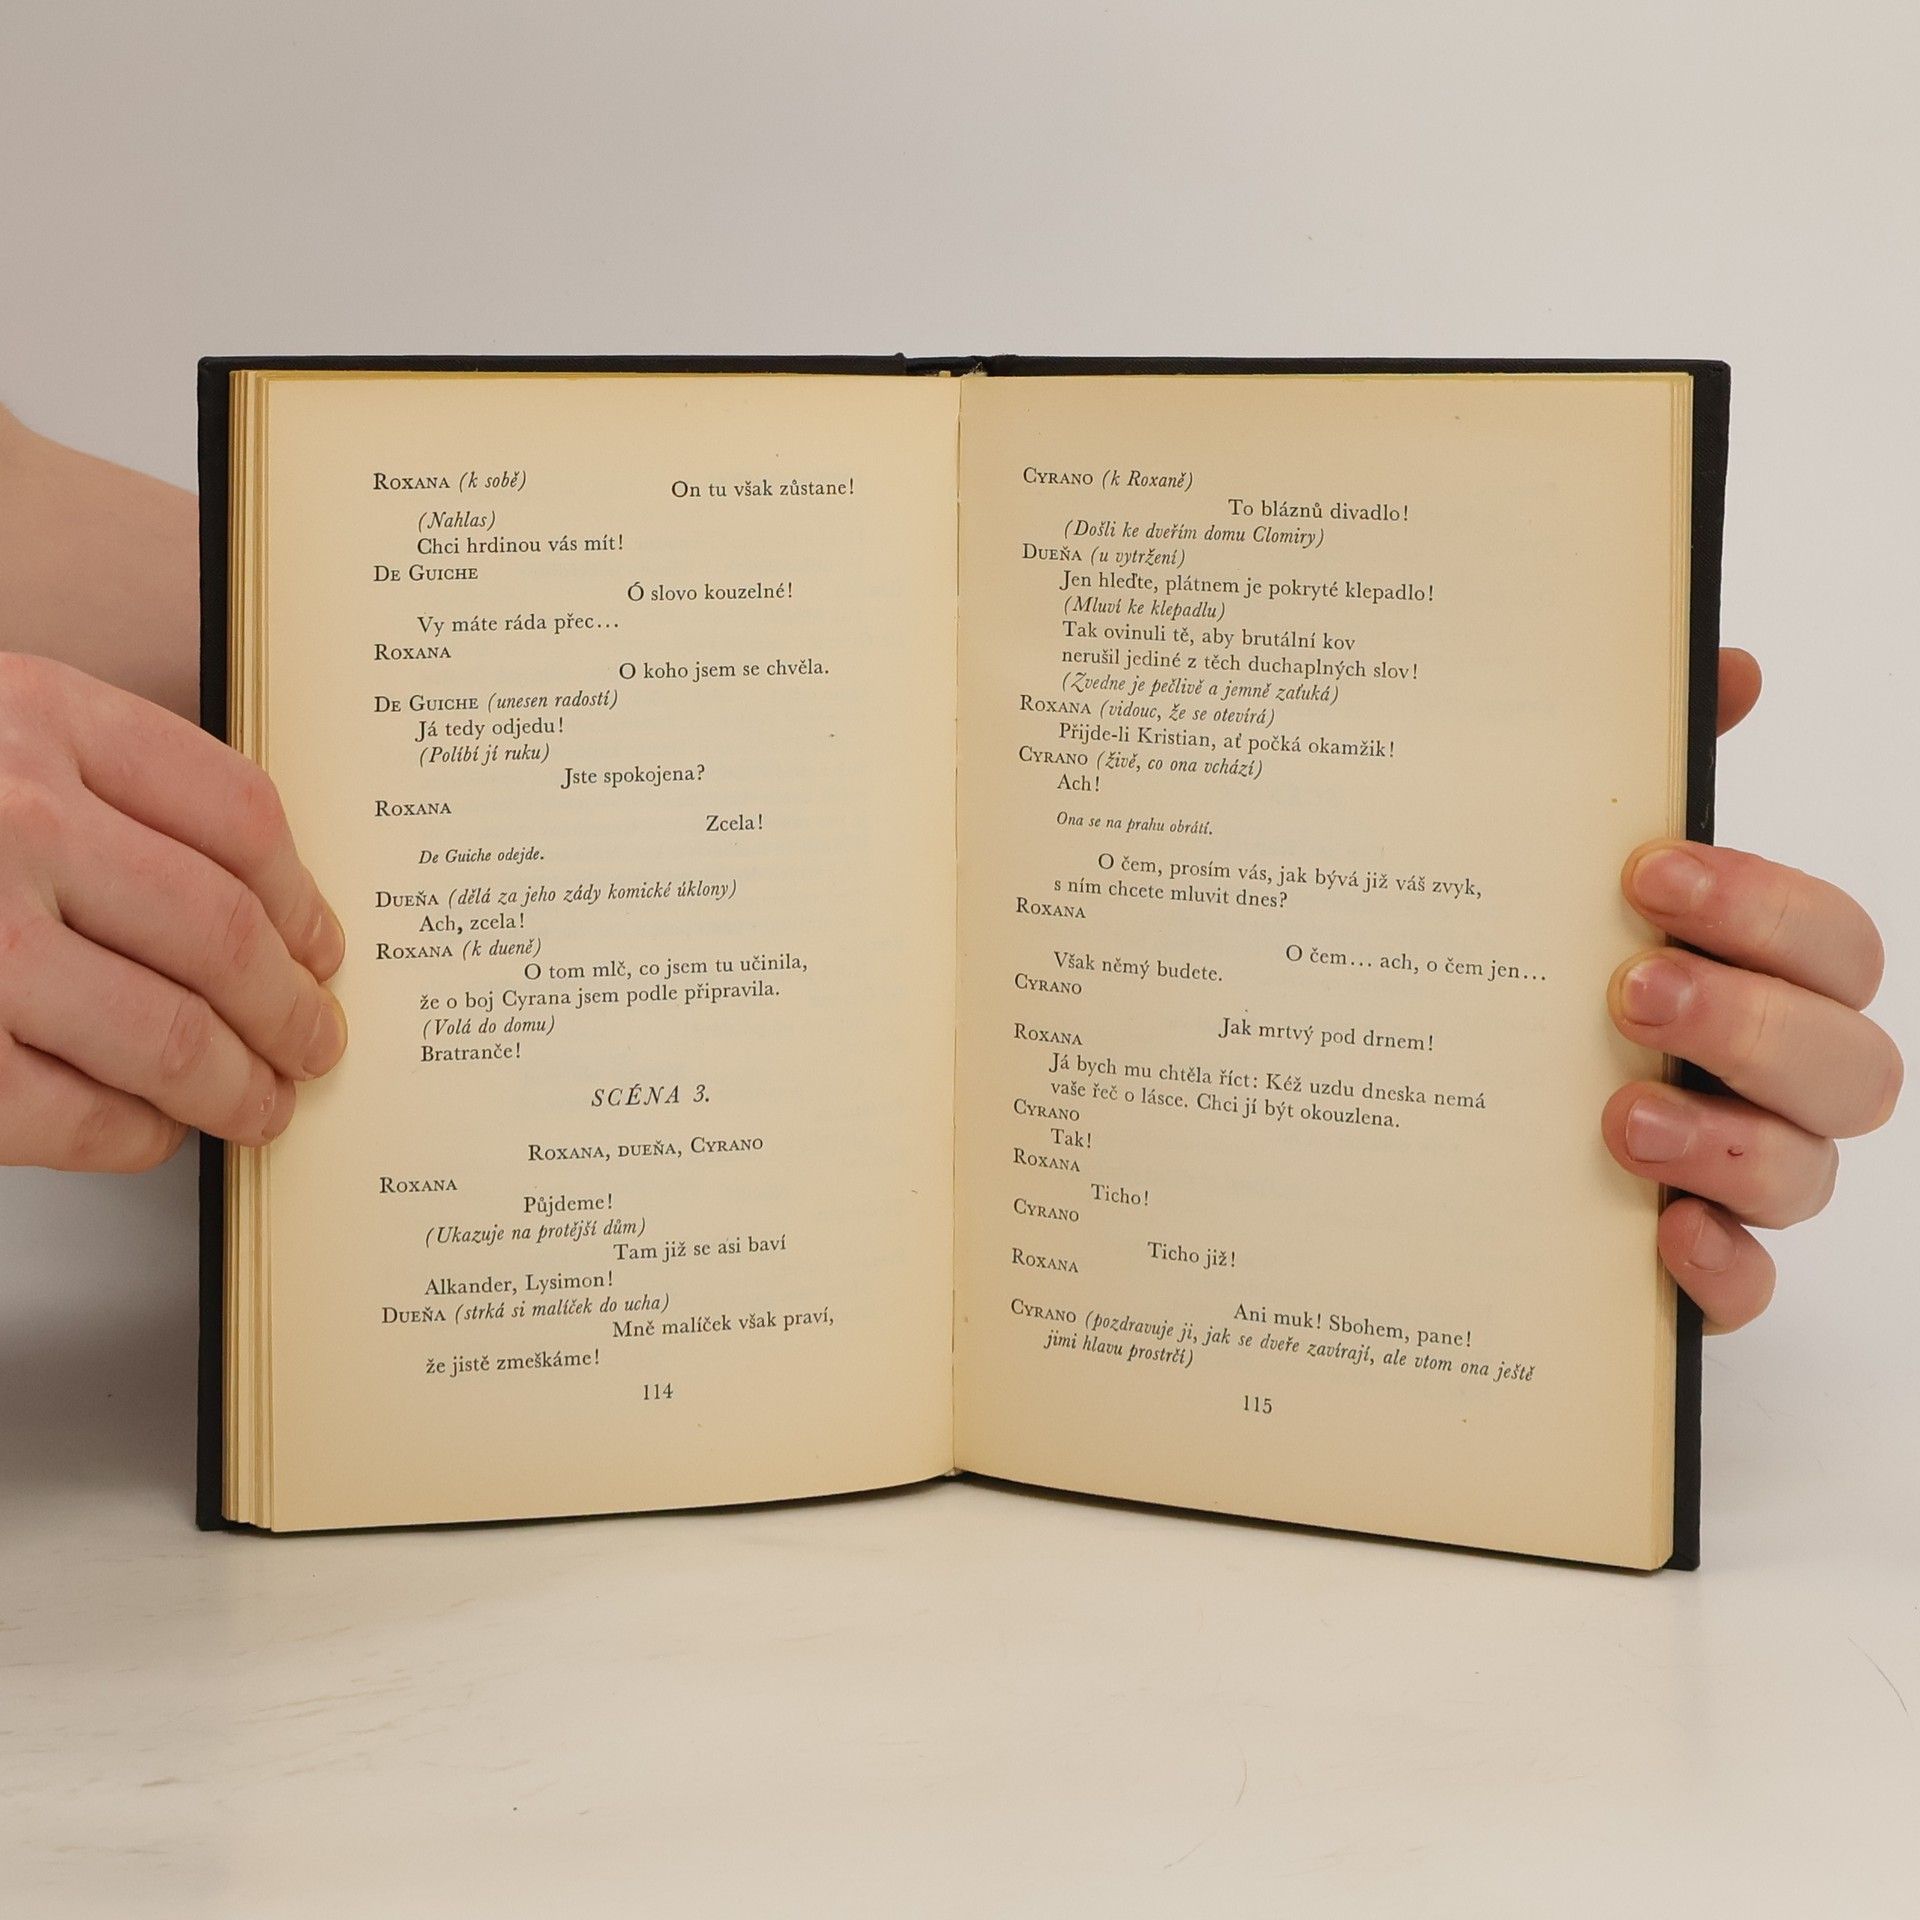 ROXANA (k sobě)
On tu však zůstane!
(Nahlas)
Chci hrdinou vás mít!
DE GUICHE
Ó slovo kouzelné!
Vy máte ráda přec...
ROXANA
O koho jsem se chvěla.
DE GUICHE (unesen radostí)
Já tedy odjedu!
(Políbí jí ruku)
Jste spokojena?
ROXANA
Zcela!
De Guiche odejde.
DUEŇA (dělá za jeho zády komické úklony)
Ach, zcela!
ROXANA (k dueně)
O tom mlč, co jsem tu učinila,
že o boj Cyrana jsem podle připravila.
(Volá do domu)
Bratranče!
SCÉNA 3.
ROXANA, DUEŇA, CYRANO
ROXANA
Půjdeme!
(Ukazuje na protější dům)
Tam již se asi baví
Alkander, Lysimon!
DUEŇA (strká si malíček do ucha)
Mně malíček však praví,
že jistě zmeškáme!
114
CYRANO (k Roxaně)
To bláznů divadlo!
(Došli ke dveřím domu Clomiry)
DUEŇA (u vytržení)
Jen hleďte, plátnem je pokryté klepadlo!
(Mluví ke klepadlu)
Tak ovinuli tě, aby brutální kov
nerušil jediné z těch duchaplných slov!
(Zvedne je pečlivě a jemně zaťuká)
ROXANA (vidouc, že se otevírá)
Přijde-li Kristian, ať počká okamžik!
CYRANO (živě, co ona vchází)
Ach!
Ona se na prahu obrátí.
O čem, prosím vás, jak bývá již váš zvyk,
s ním chcete mluvit dnes?
ROXANA
O čem... ach, o čem jen...
Však němý budete.
CYRANO
Jak mrtvý pod drnem!
ROXANA
Já bych mu chtěla říct: Kéž uzdu dneska nemá
vaše řeč o lásce. Chci jí být okouzlena.
CYRANO
Tak!
ROXANA
Ticho!
CYRANO
Ticho již!
ROXANA
Ani muk! Sbohem, pane!
CYRANO (pozdravuje ji, jak se dveře zavírají, ale vtom ona ještě
jimi hlavu prostrčí)
115